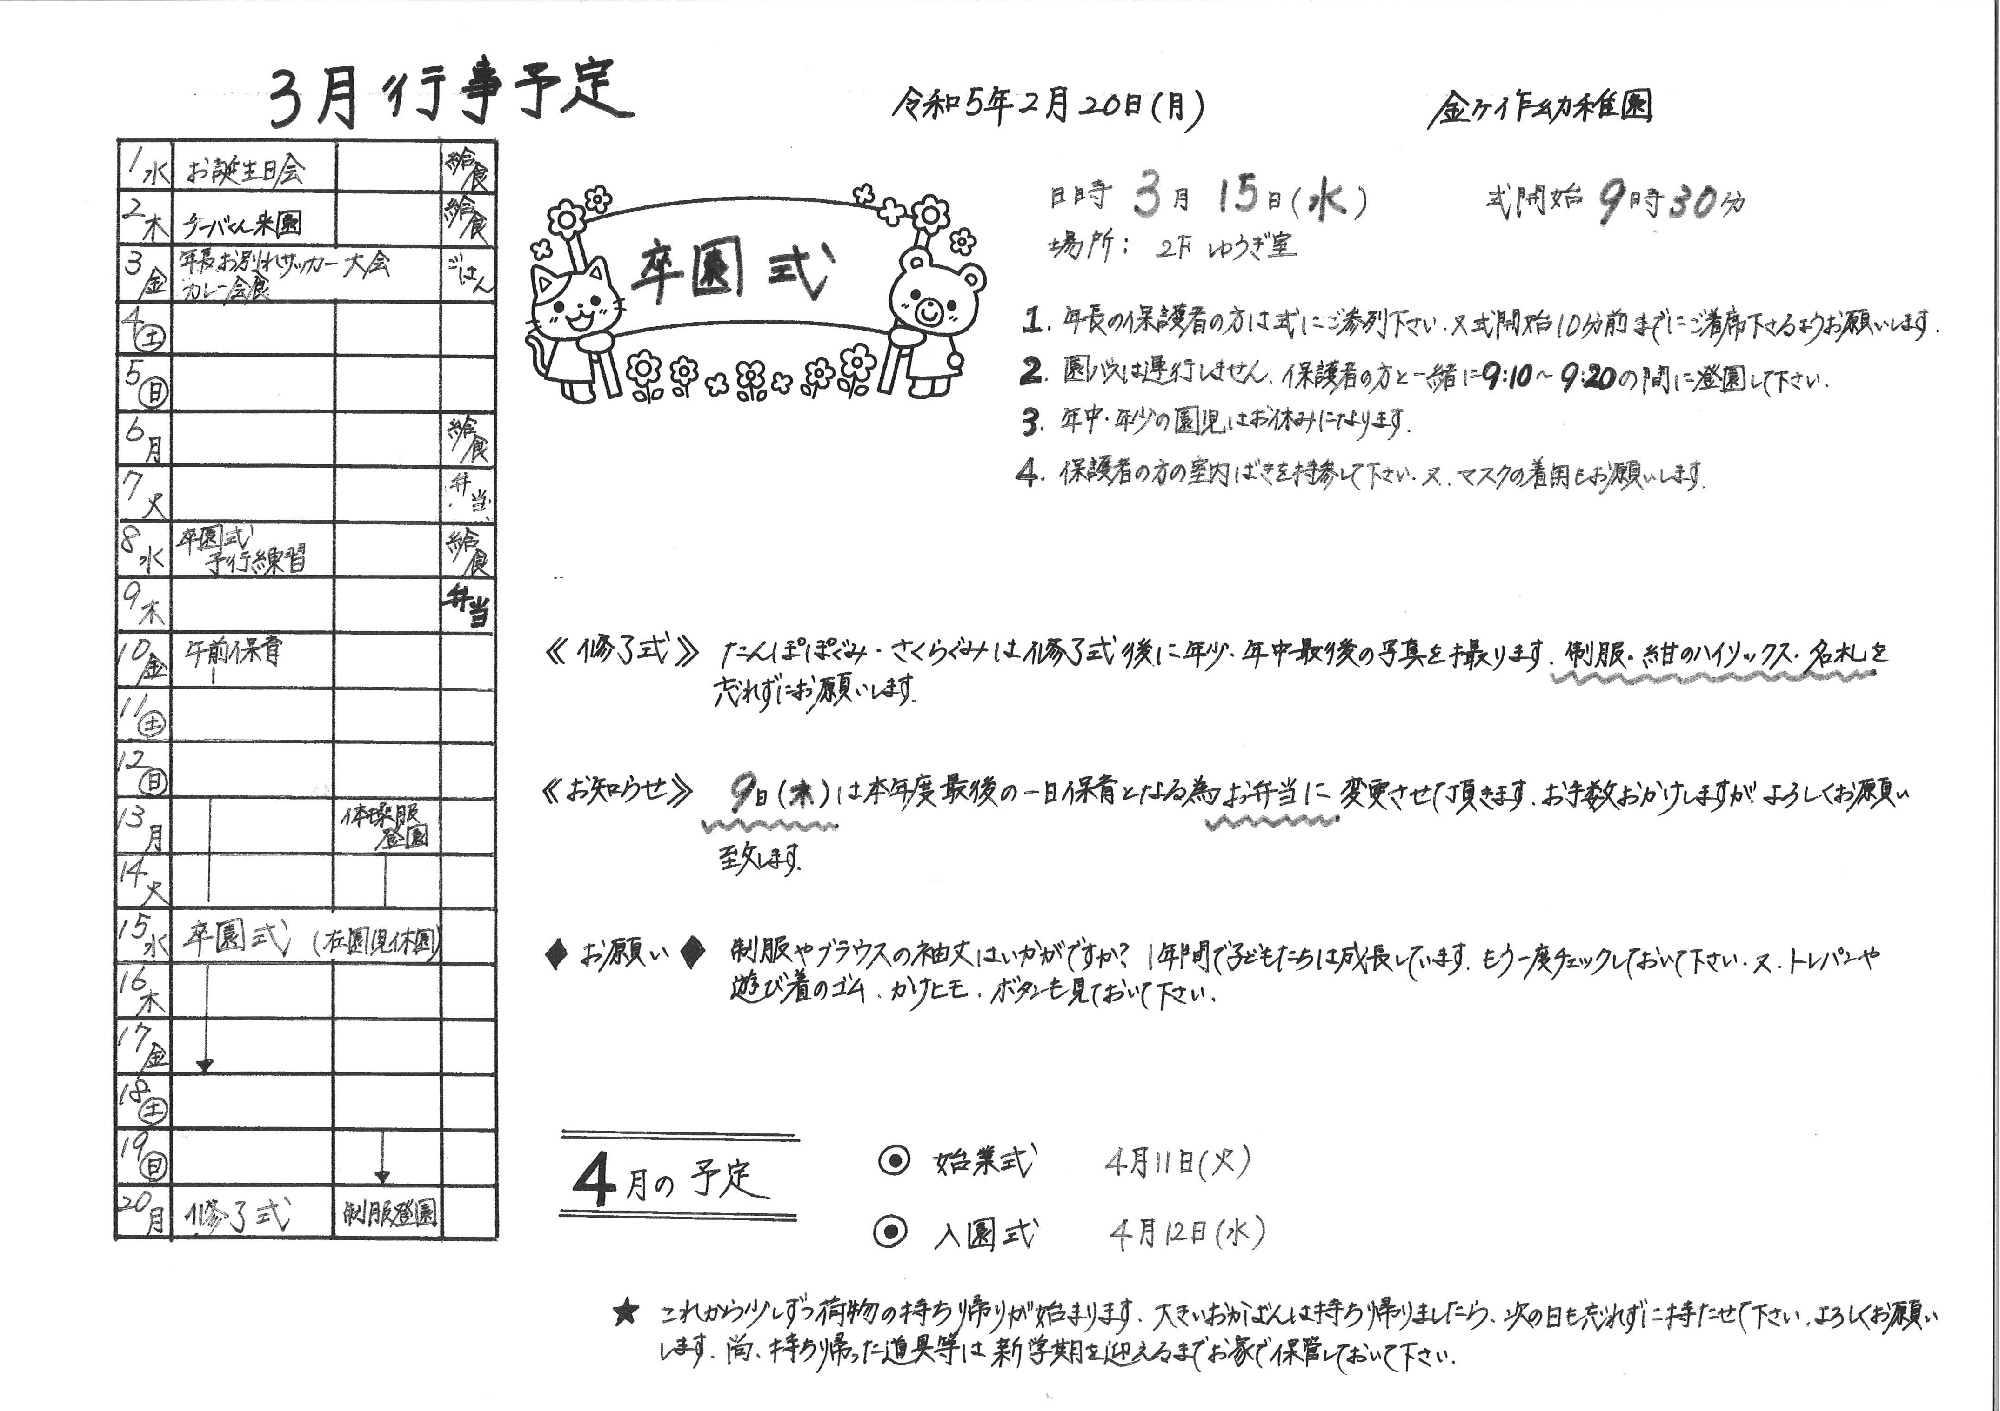 3月行事予定
令和5年2月20日(月)
金ヶ作幼稚園
1 水 お誕生日会 給食
2 木 チーバくん来園 給食
3 金 年長お別れサッカー大会 ごはん
カレー会食
4 土
5 日
6 月 給食
7 火 弁当
8 水 卒園式 給食
予行練習
9 木 弁当
10 金 午前保育
11 土
12 日
13 月 体操服
登園
14 火
15 水 卒園式 (在園児休園)
16 木
17 金
18 土
19 日
20 月 修了式 制服登園
卒園式
日時 3月 15日(水) 式開始 9時30分
場所: 2F ゆうぎ室
1. 年長の保護者の方は式にご参列下さい.又式開始10分前までにご着席下さるようお願いします.
2. 園バスは運行しません.保護者の方と一緒に9:10~9:20の間に登園して下さい.
3. 年中・年少の園児はお休みになります.
4. 保護者の方の室内ばきを持参して下さい.又.マスクの着用もお願いします.
《修了式》 たんぽぽぐみ・さくらぐみは修了式後に年少・年中最後の写真を撮ります.制服・紺のハイソックス・名札を
忘れずにお願いします.
《お知らせ》 9日(木)は本年度最後の一日保育となる為お弁当に変更させて頂きます.お手数おかけしますがよろしくお願い
致します.
◆ お願い ◆ 制服やブラウスの袖丈はいかがですか? 1年間で子どもたちは成長しています.もう一度チェックしておいて下さい.又.トレパンや
遊び着のゴム.かけヒモ.ボタンも見ておいて下さい.
4月の予定
◉ 始業式 4月11日(火)
◉ 入園式 4月12日(水)
★ これから少しずつ荷物の持ち帰りが始まります.大きいおかばんは持ち帰りましたら、次の日も忘れずに持たせて下さい.よろしくお願い
します.尚、持ち帰った道具等は新学期を迎えるまでお家で保管しておいて下さい.